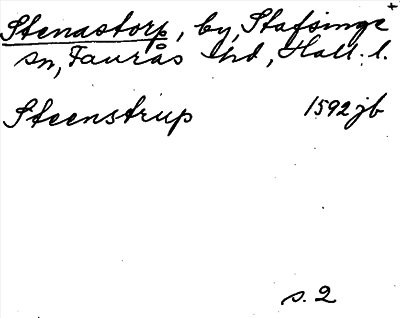 Stenastorp, by, Stafsinge
sn, Faurås hd, Hall. l.
Steenstrup 1592 jb
s. 2